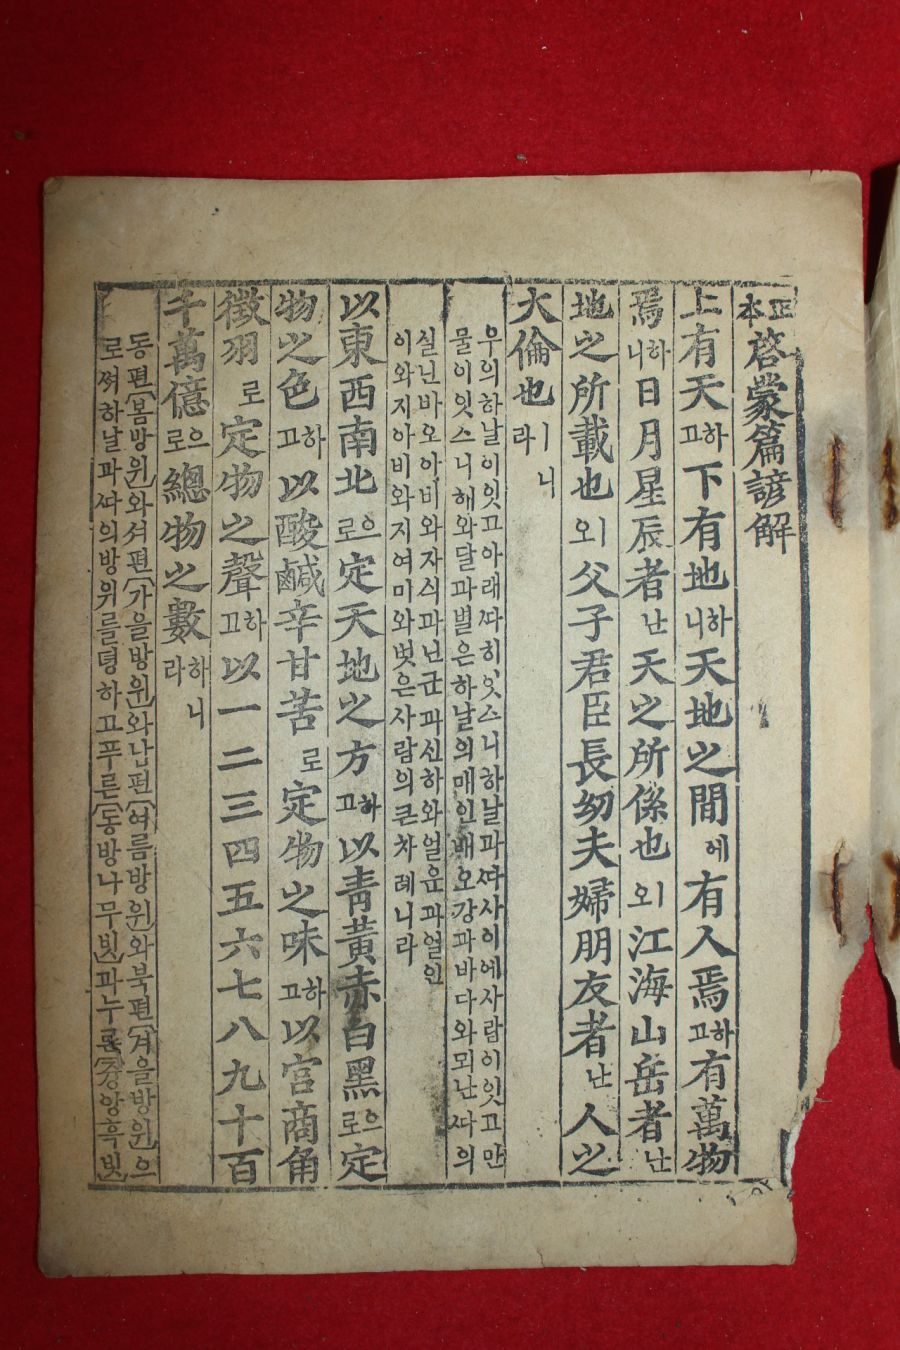 正本啓蒙篇諺解
上有天하고下有地하니天地之間에有人焉하고有萬物
焉하니日月星辰者난天之所係也오江海山岳者난
地之所載也오父子君臣長幼夫婦朋友者난人之
大倫也ㅣ니라
우의하날이잇고아래따히잇스니하날과따사이에사람이잇고만
물이잇스니해와달과별은하날의매인배오강과바다와뫼난따의
실닌바오아비와자식과님군과신하와얼운과얼인
이와지아비와지여미와벗은사람의큰차례니라
以東西南北으로定天地之方하고以靑黃赤白黑으로定
物之色하고以酸鹹辛甘苦로定物之味하고以宮商角
徵羽로定物之聲하고以一二三四五六七八九十百
千萬億으로總物之數하니라
동편(봄방위)와셔편(가을방위)와남편(여름방위)와북편(겨을방위)으
로써하날과따의방위를뎡하고푸른(동방나무빗)과누른(즁앙흑빗